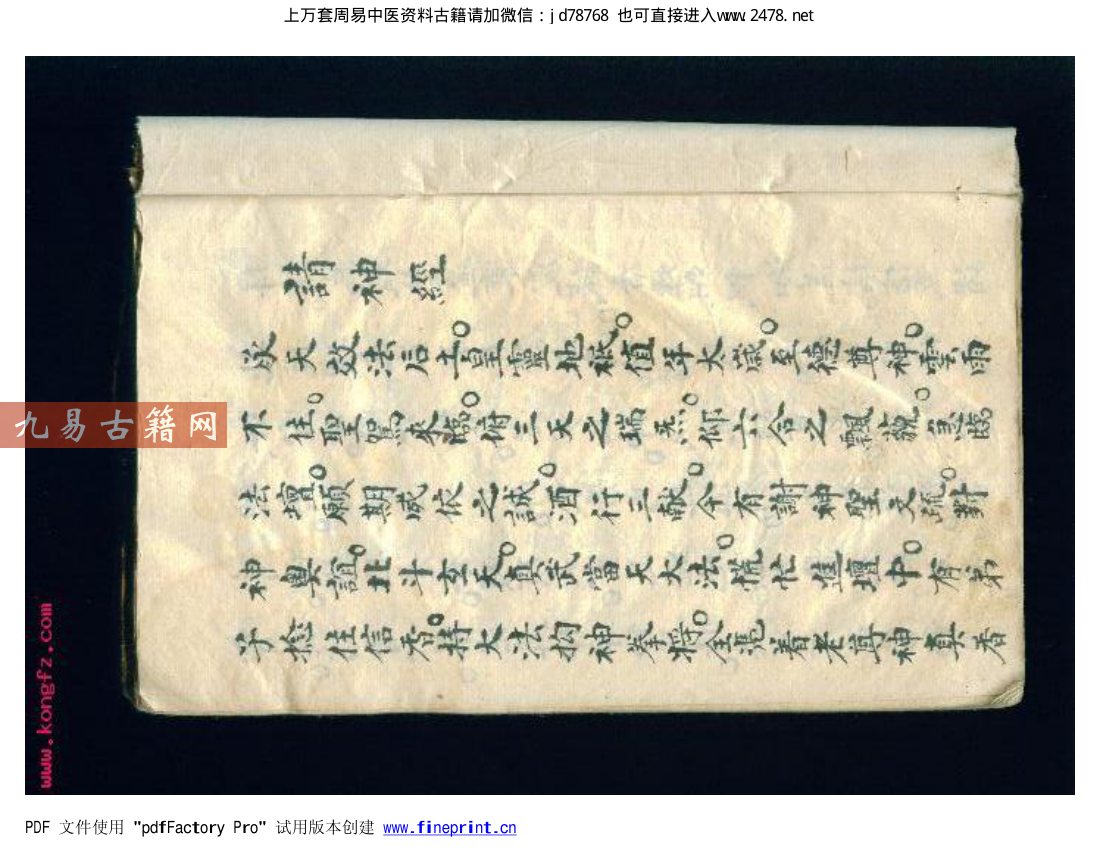 上万套周易中医资料古籍请加微信：jd78768 也可直接进入www.2478.net
請神經
天效法后土皇靈地祇值年太歲至德尊神雲雨
不住聖駕來臨府三天之瑞炁仰六合之飄
法壇願期咸依之誠酒行三献今有謝神聖文疏對
神奥誼北斗玄天真武當天大法慌忙進壇中有弟
子捻住信香持大法扣神拳将全凴着老尊神真香
九易古籍网
www.kongfz.com
PDF 文件使用 "pdfFactory Pro" 试用版本创建 www.fineprint.cn